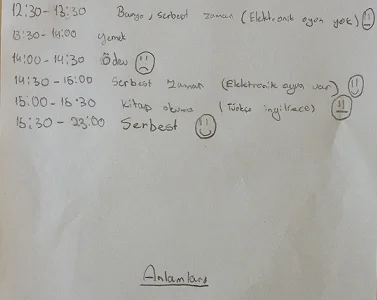 12:30-13:30 Banyo, serbest zaman (Elektronik oyun yok)
13:30-14:00 yemek
14:00-14:30 Ödev
14:30-15:00 Serbest Zaman (Elektronik oyun var)
15:00-15:30 Kitap okuma (Türkçe ingilizce)
15:30-23:00 Serbest
Anlamları